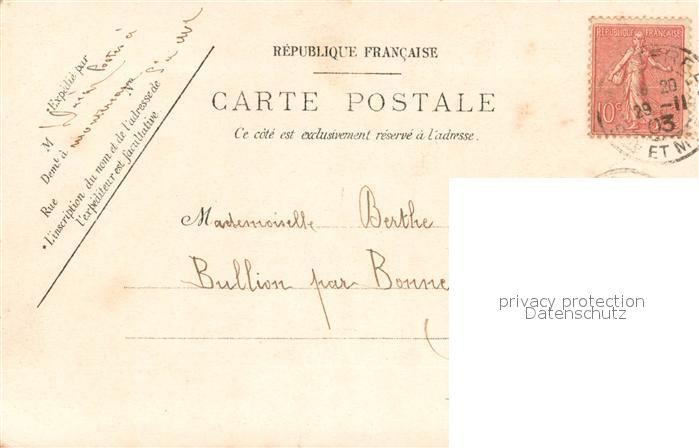 RÉPUBLIQUE FRANÇAISE
CARTE POSTALE
Ce côté est exclusivement réservé à l'adresse.
Expédié par
M
Demt à
Rue Nº
• L'inscription du nom et de l'adresse de
l'expéditeur est facultative
REPUBLIQUE FRANÇAISE
10c
20
29 -11
03
ET M
Mademoiselle Berthe
Bullion par Bonne
privacy protection
Datenschutz